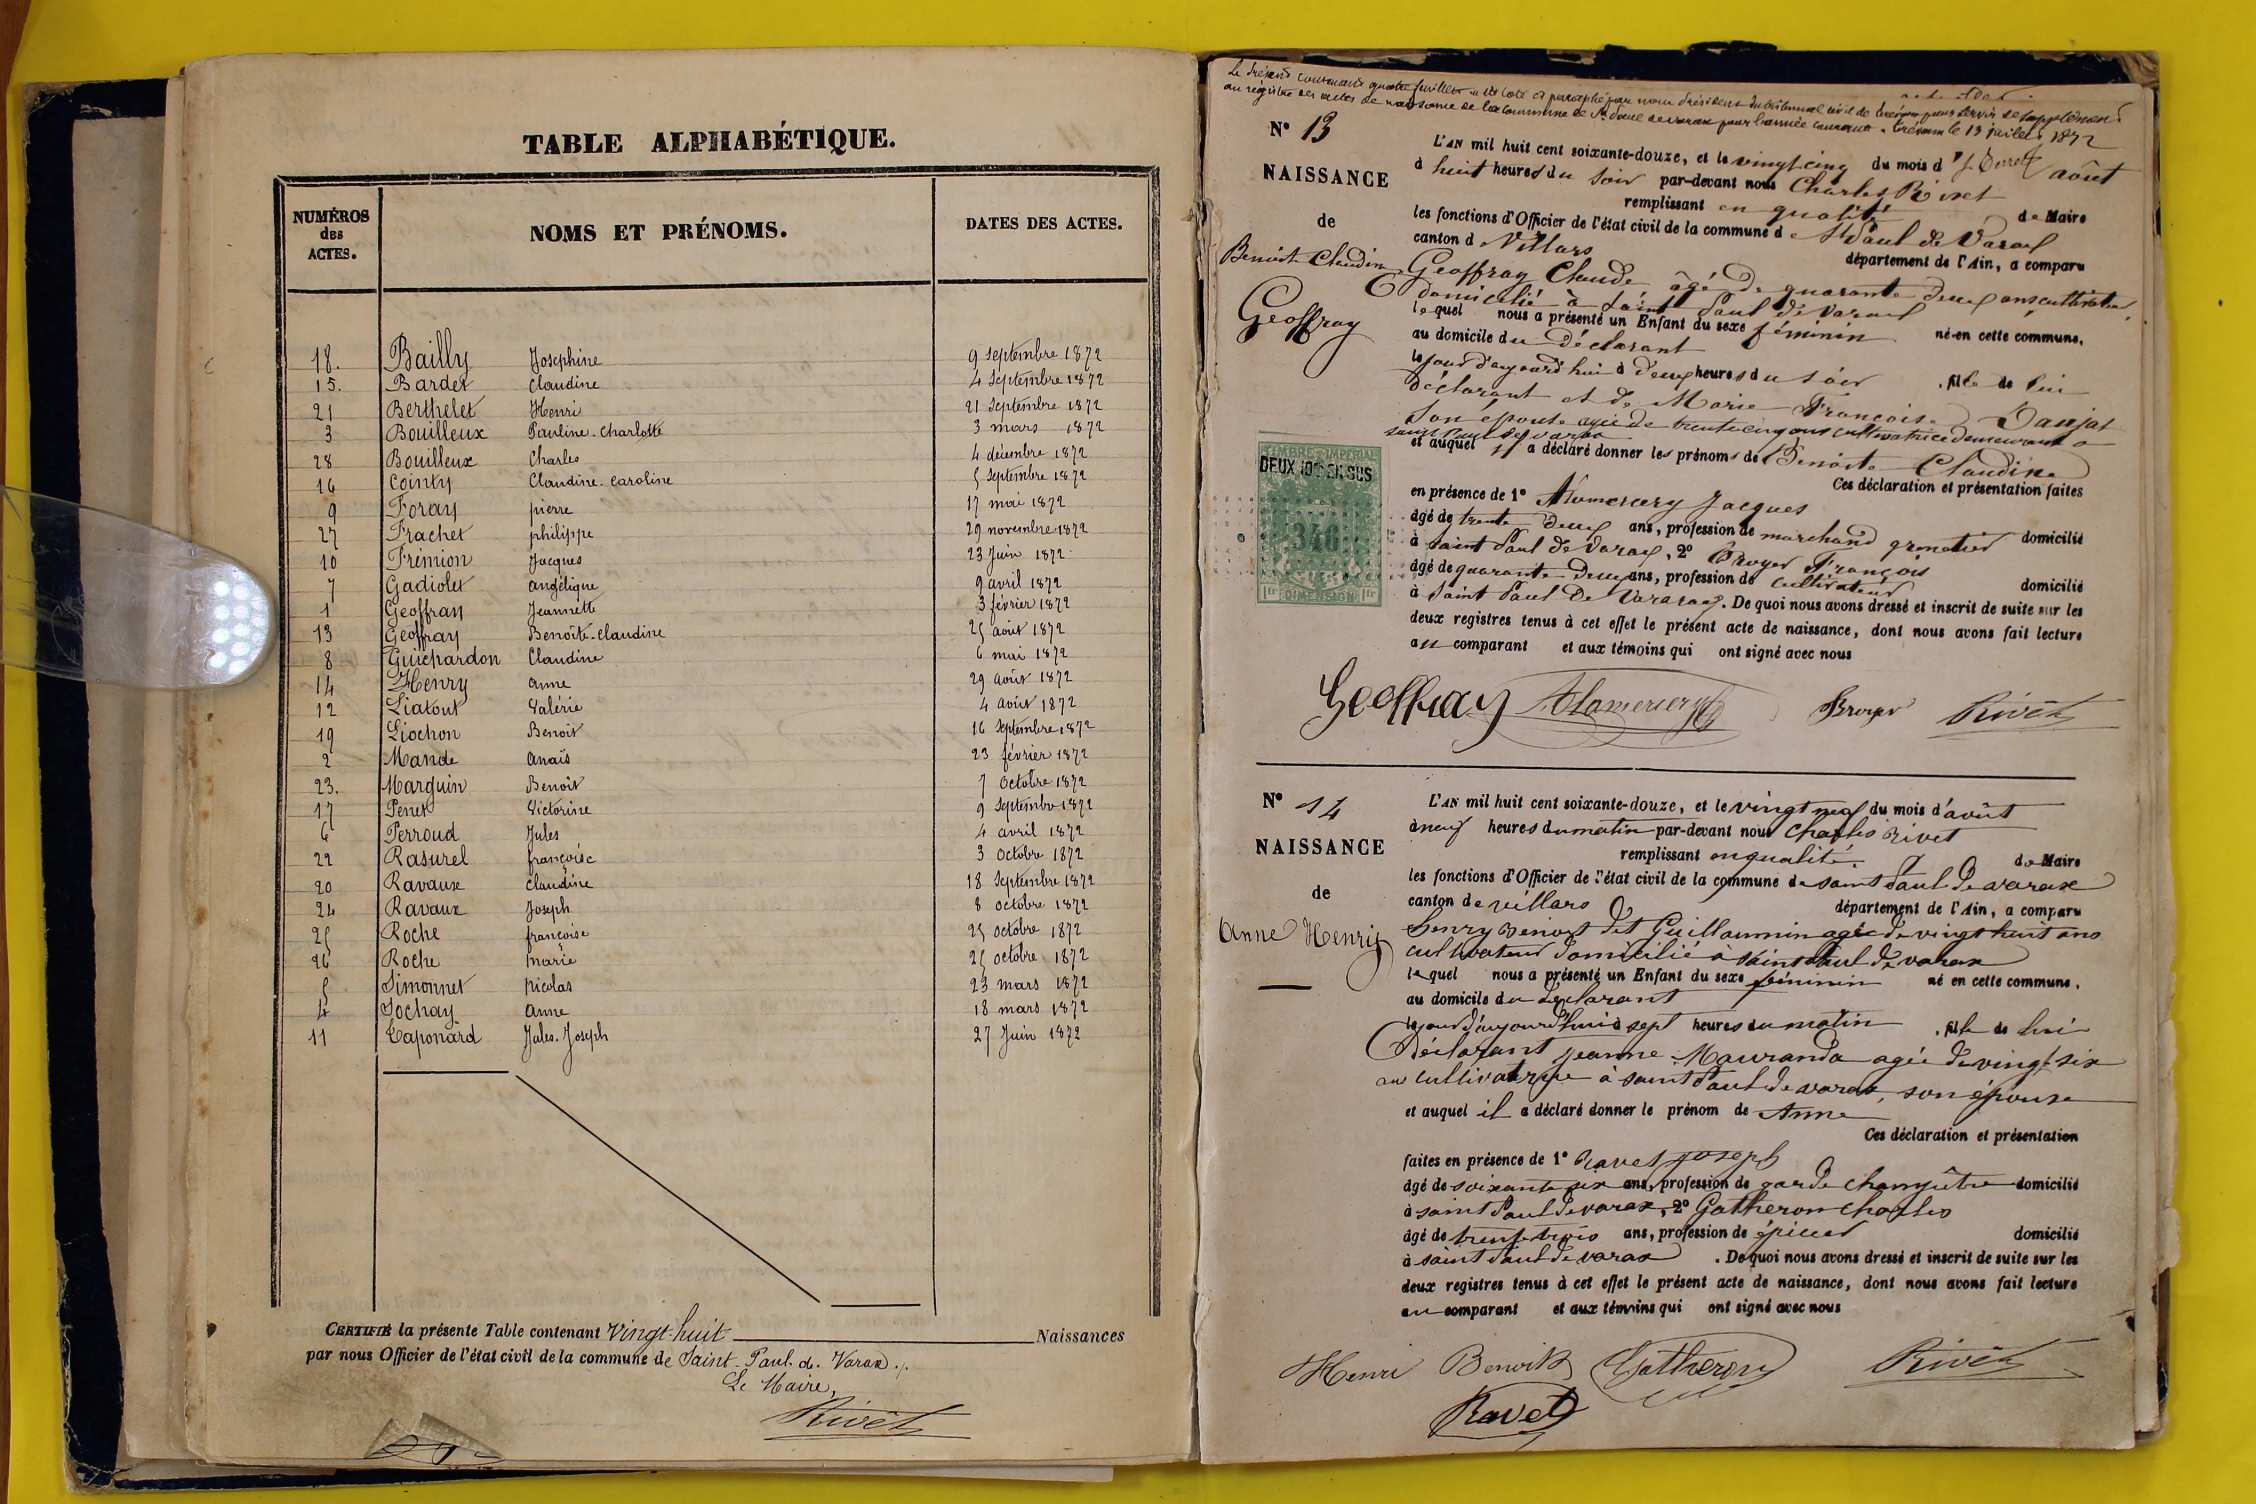 TABLE ALPHABÉTIQUE.
NUMÉROS des ACTES. NOMS ET PRÉNOMS. DATES DES ACTES.
18. Bailly Josephine 9 septembre 1872
15. Bardet Claudine 4 Septembre 1872
21 Berthelet Henri 21 Septembre 1872
3 Bouilleux Pauline-Charlotte 3 mars 1872
28 Bouilleux Charles 4 décembre 1872
16 Cointy Claudine-Caroline 5 Septembre 1872
9 Foray pierre 17 mai 1872
27 Frachet philippe 29 novembre 1872
10 Frémion Jacques 23 Juin 1872
7 Gadiolet angélique 9 avril 1872
1 Geoffray Jeannette 3 février 1872
13 Geoffray Benoîte-Claudine 25 août 1872
8 Guichardon Claudine 6 mai 1872
14 Henry anne 29 août 1872
12 Liatout Valérie 4 août 1872
19 Liochon Benoit 16 Septembre 1872
2 Mande anaïs 23 février 1872
23. Marguin Benoit 7 Octobre 1872
17 Penet Victorine 9 Septembre 1872
6 Perroud Jules 4 avril 1872
22 Rasurel françoise 3 Octobre 1872
20 Ravaux Claudine 18 Septembre 1872
24 Ravaux Joseph 8 octobre 1872
25 Roche françoise 25 octobre 1872
26 Roche marie 25 octobre 1872
5 Simonnet nicolas 23 mars 1872
4 Sochay anne 18 mars 1872
11 Taponard Jules-Joseph 27 Juin 1872
CERTIFIÉ la présente Table contenant Vingt-huit Naissances
par nous Officier de l'état civil de la commune de Saint-Paul-de-Varax
Le Maire,
Rivet
au registre des actes de naissance de la commune de St Paul de varax pour l'année courante. Trévoux le 13 juillet 1872
N° 13
NAISSANCE
de
Benoite Claudine
Geoffray
L'AN mil huit cent soixante-douze, et le vingt cinq du mois d'août
à huit heures du soir par-devant nous Charles Rivet
remplissant en qualité de Maire
les fonctions d'Officier de l'état civil de la commune de St Paul de Varax
canton d Villars département de l'Ain, a comparu
Geoffray Claude âgé de quarante deux ans cultivateur
domicilié à Saint Paul de Varax
lequel nous a présenté un Enfant du sexe féminin né en cette commune,
au domicile du déclarant
le jour d'aujourd'hui à deux heures du soir, fille de lui
déclarant et de Marie Françoise Danjat
son épouse agée de trente cinq ans cultivatrice demeurant à
saint Paul de varax
et auquel il a déclaré donner les prénoms de Benoite Claudine
Ces déclaration et présentation faites
en présence de 1° Alomercery Jacques
âgé de trente deux ans, profession de marchand grenetier domicilié
à Saint Paul de Varax, 2° Broyer François
âgé de quarante deux ans, profession de cultivateur domicilié
à Saint Paul de Varax. De quoi nous avons dressé et inscrit de suite sur les
deux registres tenus à cet effet le présent acte de naissance, dont nous avons fait lecture
au comparant et aux témoins qui ont signé avec nous
TIMBRE IMPÉRIAL
DEUX 10mes EN SUS
346
1fr DIMENSION 1fr
Geoffray Alomercery Broyer Rivet
N° 14
NAISSANCE
de
Anne Henry
L'AN mil huit cent soixante-douze, et le vingt neuf du mois d'août
à neuf heures du matin par-devant nous Charles Rivet
remplissant en qualité de Maire
les fonctions d'Officier de l'état civil de la commune de saint Paul de varax
canton de villars département de l'Ain, a comparu
henry Benoit dit Guillaumin agé de vingt huit ans
cultivateur domicilié à Saint Paul de varax
lequel nous a présenté un Enfant du sexe féminin né en cette commune,
au domicile du déclarant
le jour d'aujourd'hui à sept heures du matin, fille de lui
déclarant Jeanne Mauranda agée de vingt six
ans cultivatrice à saint Paul de varax, son épouse
et auquel il a déclaré donner le prénom de Anne
Ces déclaration et présentation
faites en présence de 1° Ravet Joseph
âgé de soixante six ans, profession de garde champêtre domicilié
à saint Paul de varax, 2° Gatheron Charles
âgé de trente trois ans, profession de épicier domicilié
à saint Paul de varax. De quoi nous avons dressé et inscrit de suite sur les
deux registres tenus à cet effet le présent acte de naissance, dont nous avons fait lecture
au comparant et aux témoins qui ont signé avec nous
Henri Benoit Gatheron Rivet
Ravet